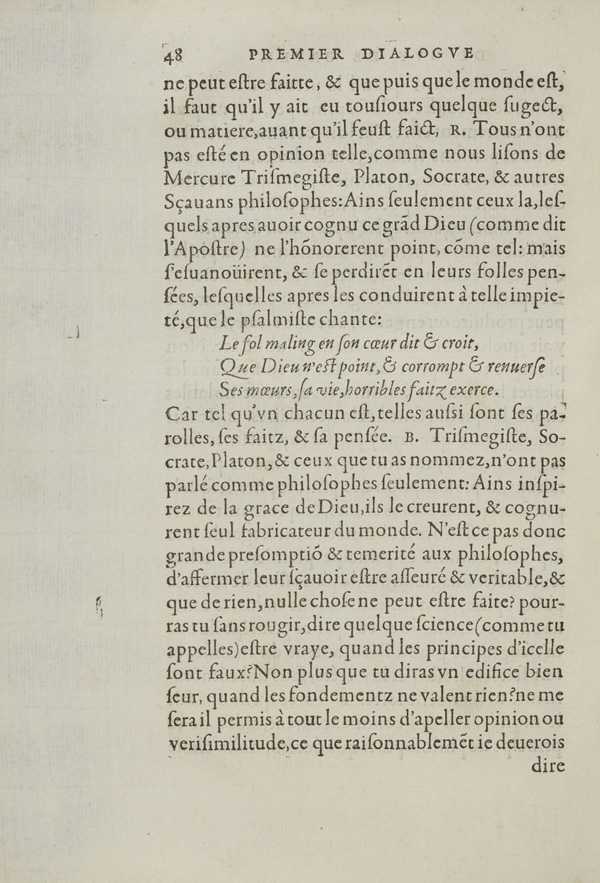 48 PREMIER DIALOGVE
ne peut eſtre faitte, & que puis que le monde eſt,
il faut qu'il y ait eu touſiours quelque ſugect,
ou matiere,auant qu'il feuſt faict, R. Tous n'ont
pas eſté en opinion telle,comme nous liſons de
Mercure Triſmegiſte, Platon, Socrate, & autres
Sçauans philoſophes:Ains ſeulement ceux la,leſ-
quels apres auoir cognu ce grãd Dieu (comme dit
l'Apoſtre) ne l'hõnorerent point, cõme tel: mais
ſ'eſuanoüirent, & ſe perdirẽt en leurs folles pen-
ſées, leſquelles apres les conduirent à telle impie-
té,que le pſalmiſte chante:
Le fol maling en ſon cœur dit & croit,
Que Dieu n'eſt point, & corrompt & renuerſe
Ses mœurs, ſa vie,horribles faitz exerce.
Car tel qu'vn chacun eſt,telles auſsi ſont ſes pa-
rolles, ſes faitz, & ſa penſée. B. Triſmegiſte, So-
crate,Platon,& ceux que tu as nommez,n'ont pas
parlé comme philoſophes ſeulement: Ains inſpi-
rez de la grace de Dieu,ils le creurent, & cognu-
rent ſeul fabricateur du monde. N'eſt ce pas donc
grande preſomptiõ & temerité aux philoſophes,
d'affermer leur ſçauoir eſtre aſſeuré & veritable,&
que de rien,nulle choſe ne peut eſtre faite? pour-
ras tu ſans rougir,dire quelque ſcience(comme tu
appelles)eſtre vraye, quand les principes d'icelle
ſont faux?Non plus que tu diras vn edifice bien
ſeur, quand les fondementz ne valent rien?ne me
ſera il permis à tout le moins d'apeller opinion ou
veriſimilitude,ce que raiſonnablemẽt ie deuerois
dire